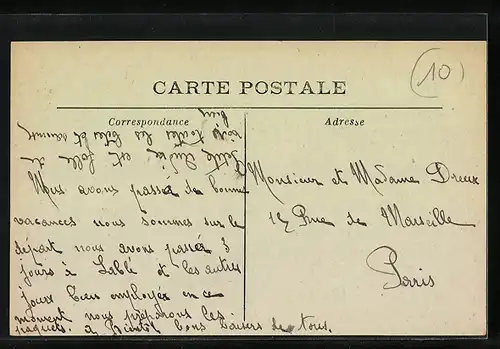 (10)
CARTE POSTALE
Correspondance
Adresse
Nous avons passer de bonne
vacances nous sommes sur le
départ nous avons passé 3
jours à Sablé et les autres
jour bien employés en ce
moment nous préparons les
paquets. a bientôt bons baisers de tous.
Petite Andrée est folle de
voir toutes les bêtes et
bien
Monsieur et Madame Dreux
12 Rue de Marseille
Paris